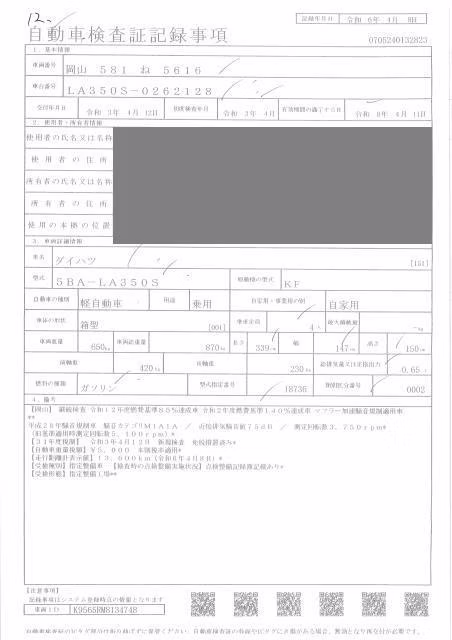 12.
記録年月日 令和 6年 4月 8日
自動車検査証記録事項
0705240132823
1. 基本情報
車両番号 岡山 581 ね 5616
車台番号 LA350S-0262128
交付年月日 令和 3年 4月 12日 初度検査年月 令和 3年 4月 有効期間の満了する日 令和 8年 4月 11日
2. 使用者・所有者情報
使用者の氏名又は名称
使用者の住所
所有者の氏名又は名称
所有者の住所
使用の本拠の位置
3. 車両詳細情報
車名 ダイハツ [151]
型式 5BA-LA350S 原動機の型式 KF
自動車の種別 軽自動車 用途 乗用 自家用・事業用の別 自家用
車体の形状 箱型 [001] 乗車定員 4人 最大積載量 -kg
車両重量 650kg 車両総重量 870kg 長さ 339 幅 147 高さ 150
前軸重 420kg 後軸重 230kg 総排気量又は定格出力 0.65
燃料の種類 ガソリン 型式指定番号 18736 類別区分番号 0002
4. 備考
【岡山】 継続検査 令和12年度燃費基準85%達成車 令和2年度燃費基準140%達成車 マフラー加速騒音規制適用車
**
平成28年騒音規制車 騒音カテゴリM1A1A / 近接排気騒音値75dB / 測定回転数3,750rpm*
(旧基準適用時測定回転数5,100rpm)*
【31年度税制】 令和3年4月12日 新規検査 免税措置済み*
【自動車重量税額】¥5,000 本則税率適用*
【走行距離計表示値】13,600km(令和6年4月8日)*
【受検種別】指定整備車 【検査時の点検整備実施状況】点検整備記録簿記載あり*
【受検形態】指定整備工場**
【注意事項】
記録事項はシステム登録時点の情報となります
車両ID K9565RMS134748